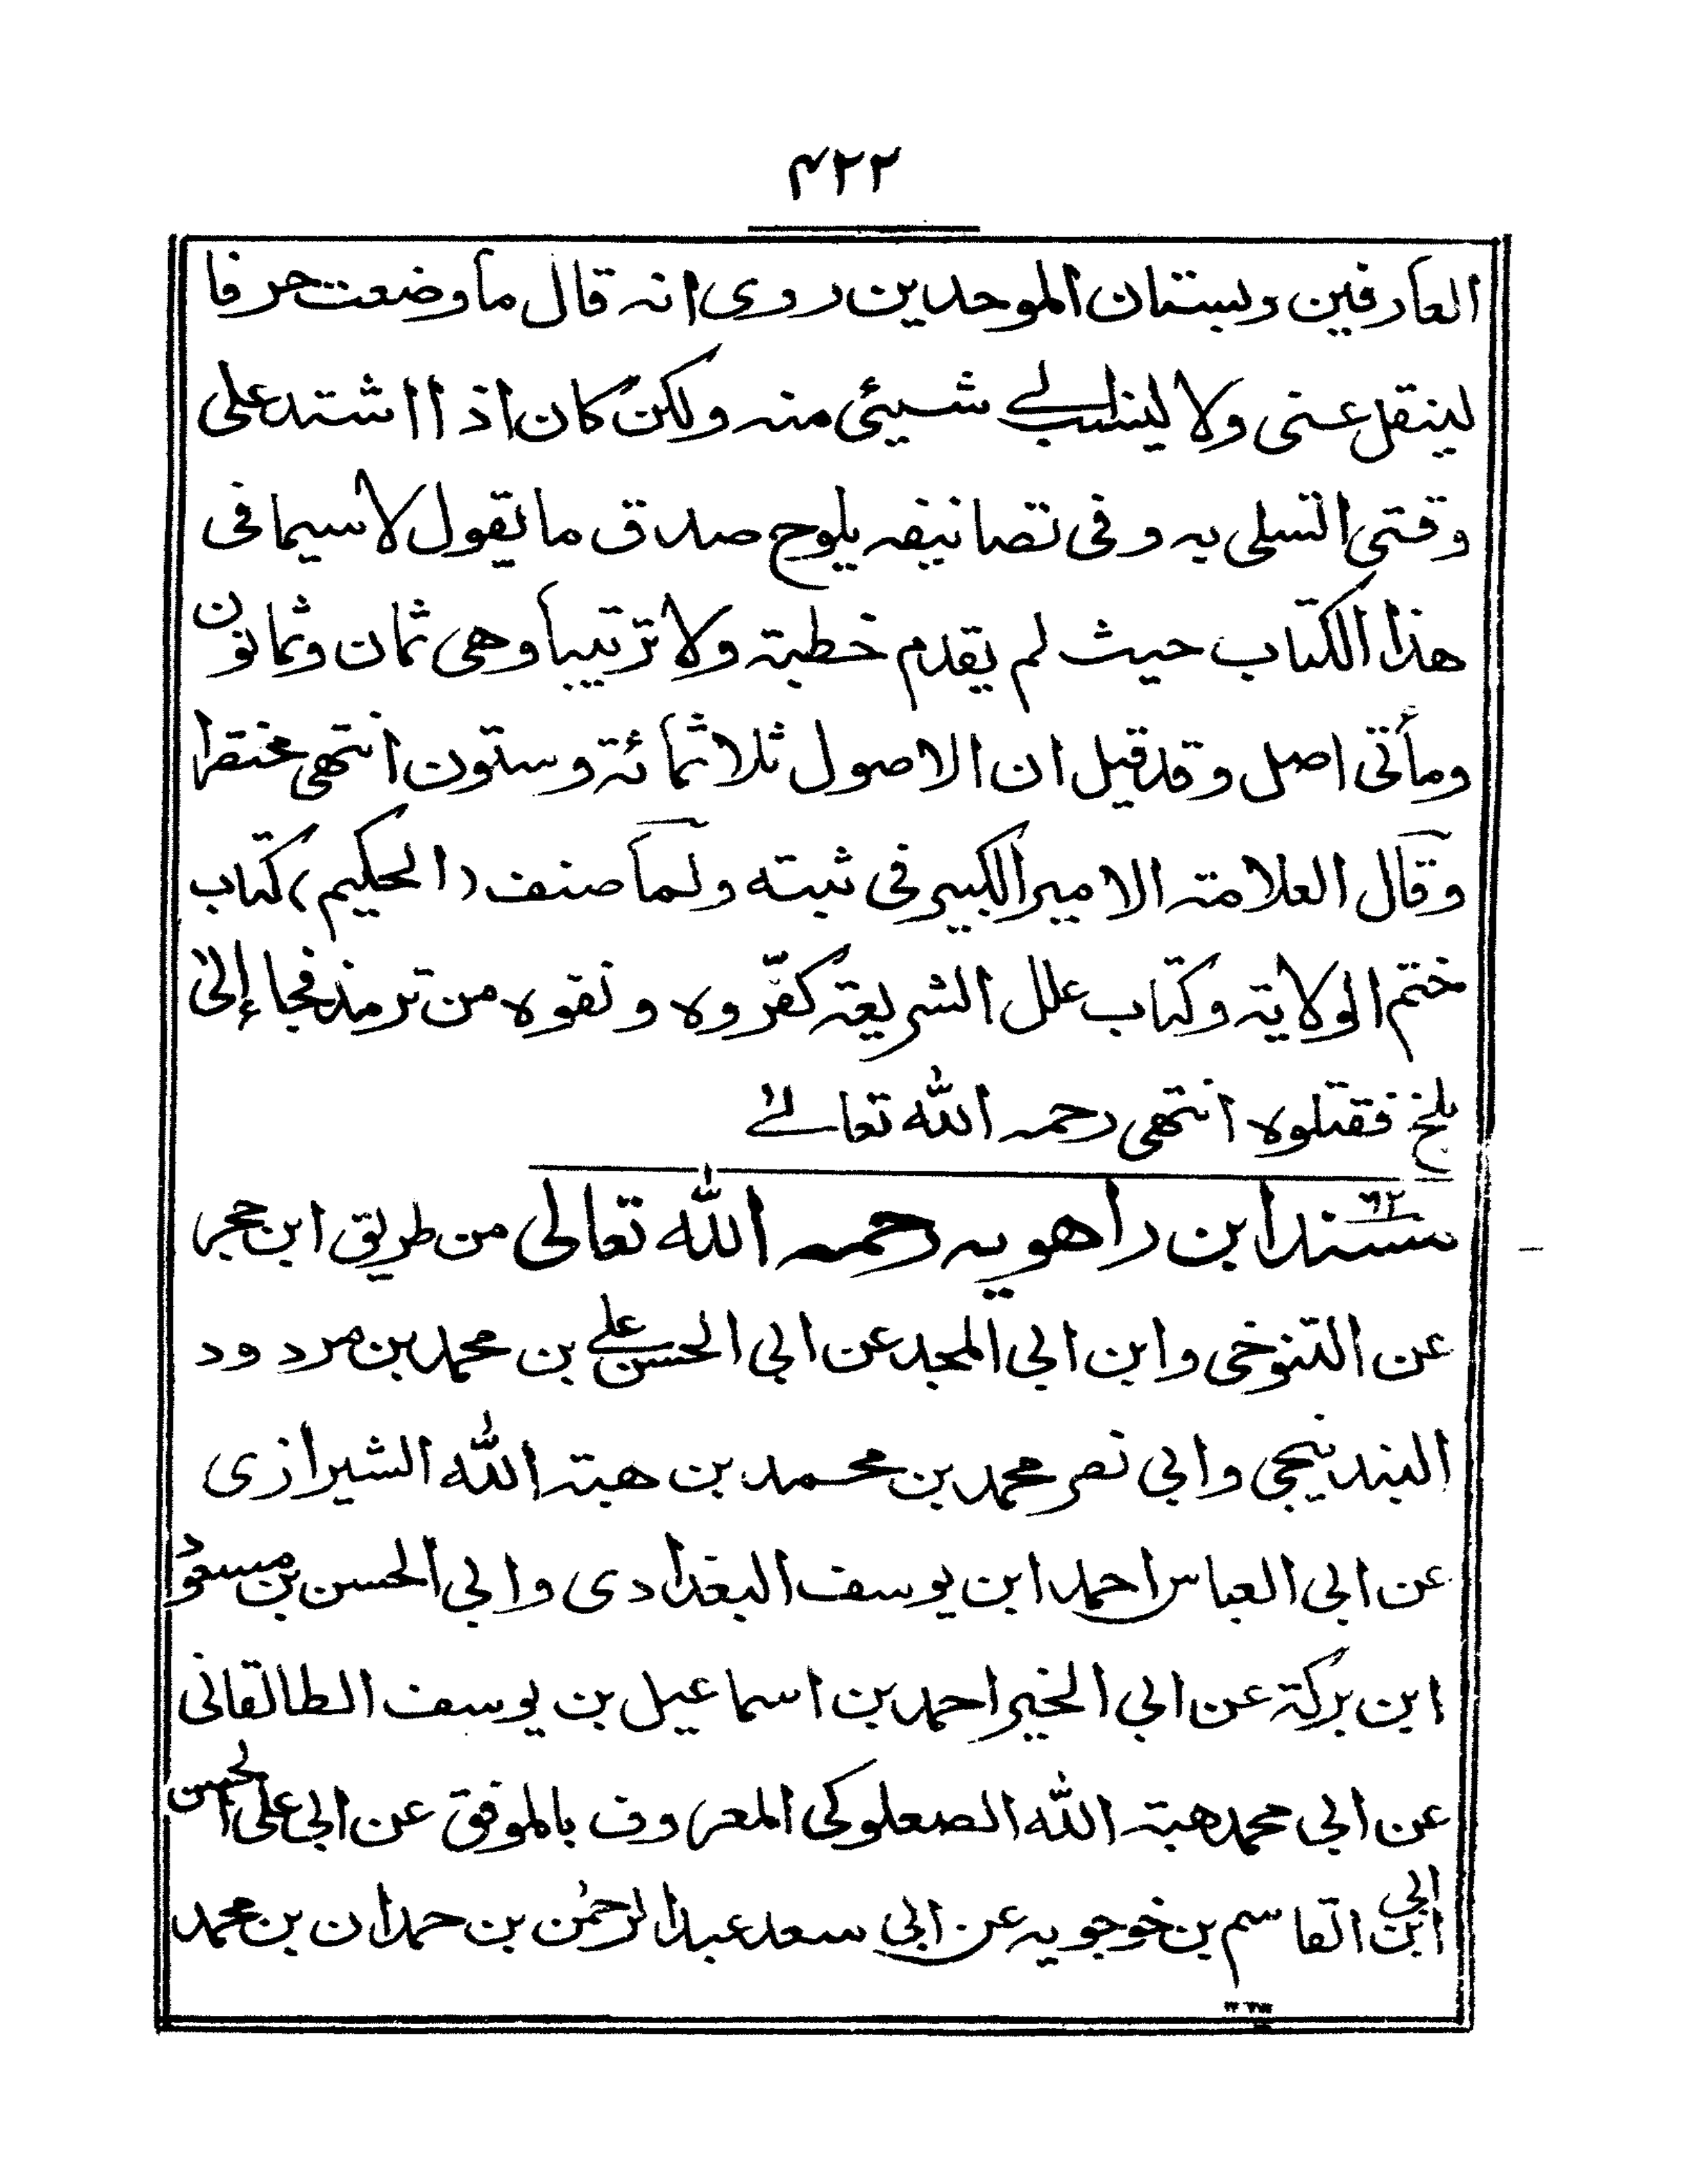 ۴۲۲
العارفين وبستان الموحدين روى انه قال ما وضعت حرفا
لينقل عنى ولا لينسب الے شيئى منه ولكن كان اذا اشتد على
وقتى التسلى به وفى تصانيفه يلوح صدق ما يقول لاسيما فى
هذا الكتاب حيث لم يقدم خطبة ولا ترتيبا وهى ثمان وثمانون
ومأتى اصل وقد قيل ان الاصول ثلاثمائة وستون انتهى مختصرا
وقال العلامة الامير الكبير فى ثبته ولما صنف (الحكيم) كتاب
ختم الولاية وكتاب علل الشريعة كفّروه ونفوه من ترمذ فجاء إلى
بلخ فقتلوه انتهى رحمه الله تعالےٰ
۶۲
مسند ابن راهويه رحمه الله تعالى من طريق ابن حجر
عن التنوخى وابن ابي المجد عن ابي الحسن علے بن محمد بن مردود
البندنيجي وابي نصر محمد بن محمد بن هبة الله الشيرازى
عن ابي العباس احمد ابن يوسف البغدادى وابي الحسن بن مسعود
ابن بركة عن ابي الخير احمد بن اسماعيل بن يوسف الطالقانى
عن ابي محمد هبة الله الصعلوكى المعروف بالموفق عن ابي على الحسن
ابن ابي القاسم بن خوجويه عن ابي سعد عبد الرحمٰن بن حمدان بن محمد